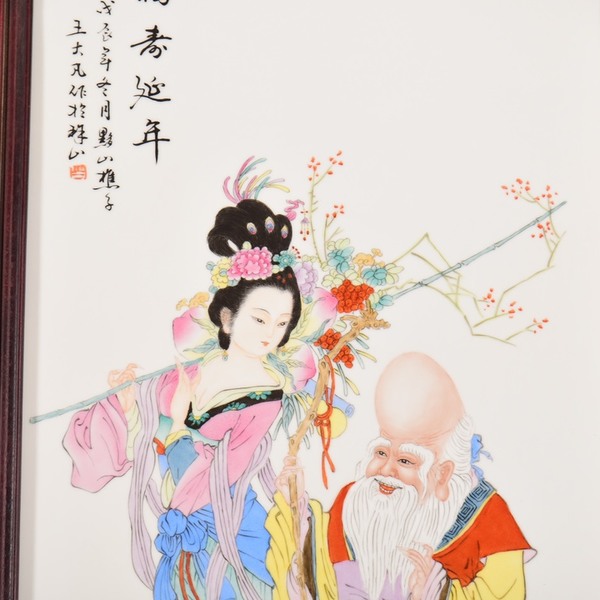 壽延年
戊辰年冬月黟山樵子
王大凡作於珠山